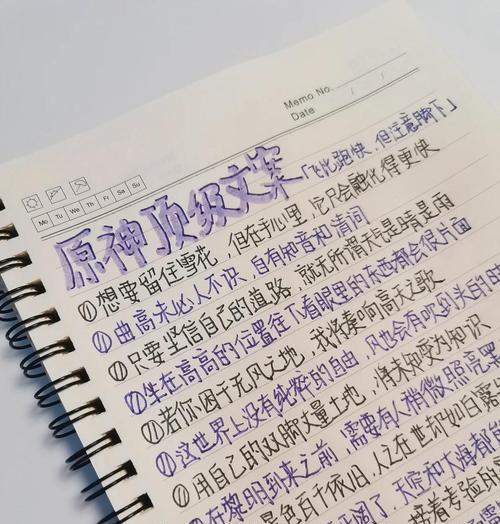 Memo No.
Date / /
Mo Tu We Th Fr Sa Su
原神顶级文案「飞比跑快,但注意脚下」
①想要留住雪花,但在手心里,它只会融化得更快
①曲高未必人不识,自有知音和清词
①只要坚信自己的道路,就无所谓天是晴是雨
①坐在高高的位置往下看眼里的东西都会很片面
①若你困于无风之地,我将奏响高天之歌
①这世界上没有纯粹的自由,风也会有吹到头的时
①用自己的双脚丈量土地,将未知变为知识
①在黎明到来之前,需要有人稍微照亮黑
景色百千依旧,人之在世却如白露
阔了,天空和大海都
接着考验的